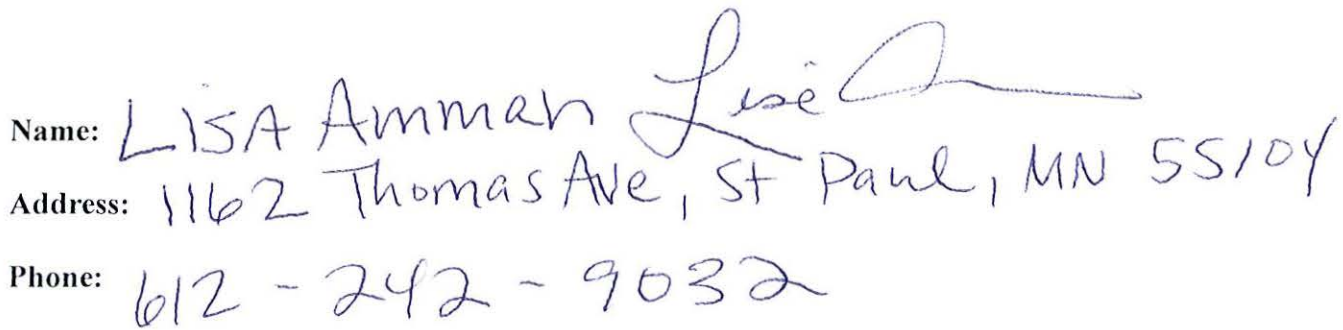 Name: LISA Amman Lisa
Address: 1162 Thomas Ave, St Paul, MN 55104
Phone: 612-242-9032